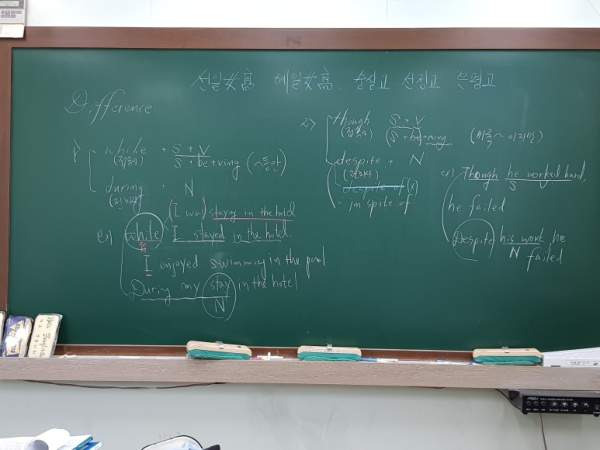 선일女高 예일女高 숭실고 선정고 은평고
Difference
1) while + S + V
(접속사) S + be + ving (~동안)
during + N
(전치사)
(I was) staying in the hotel
ex) while I stayed in the hotel
I enjoyed swimming in the pool
During my stay in the hotel
N
2) though S + V
(접속사) (S + be + ving (비록~이지만)
despite + N
(전치사)
despite of (X)
in spite of
ex) Though he worked hard,
S
he failed
Despite his work he
N failed